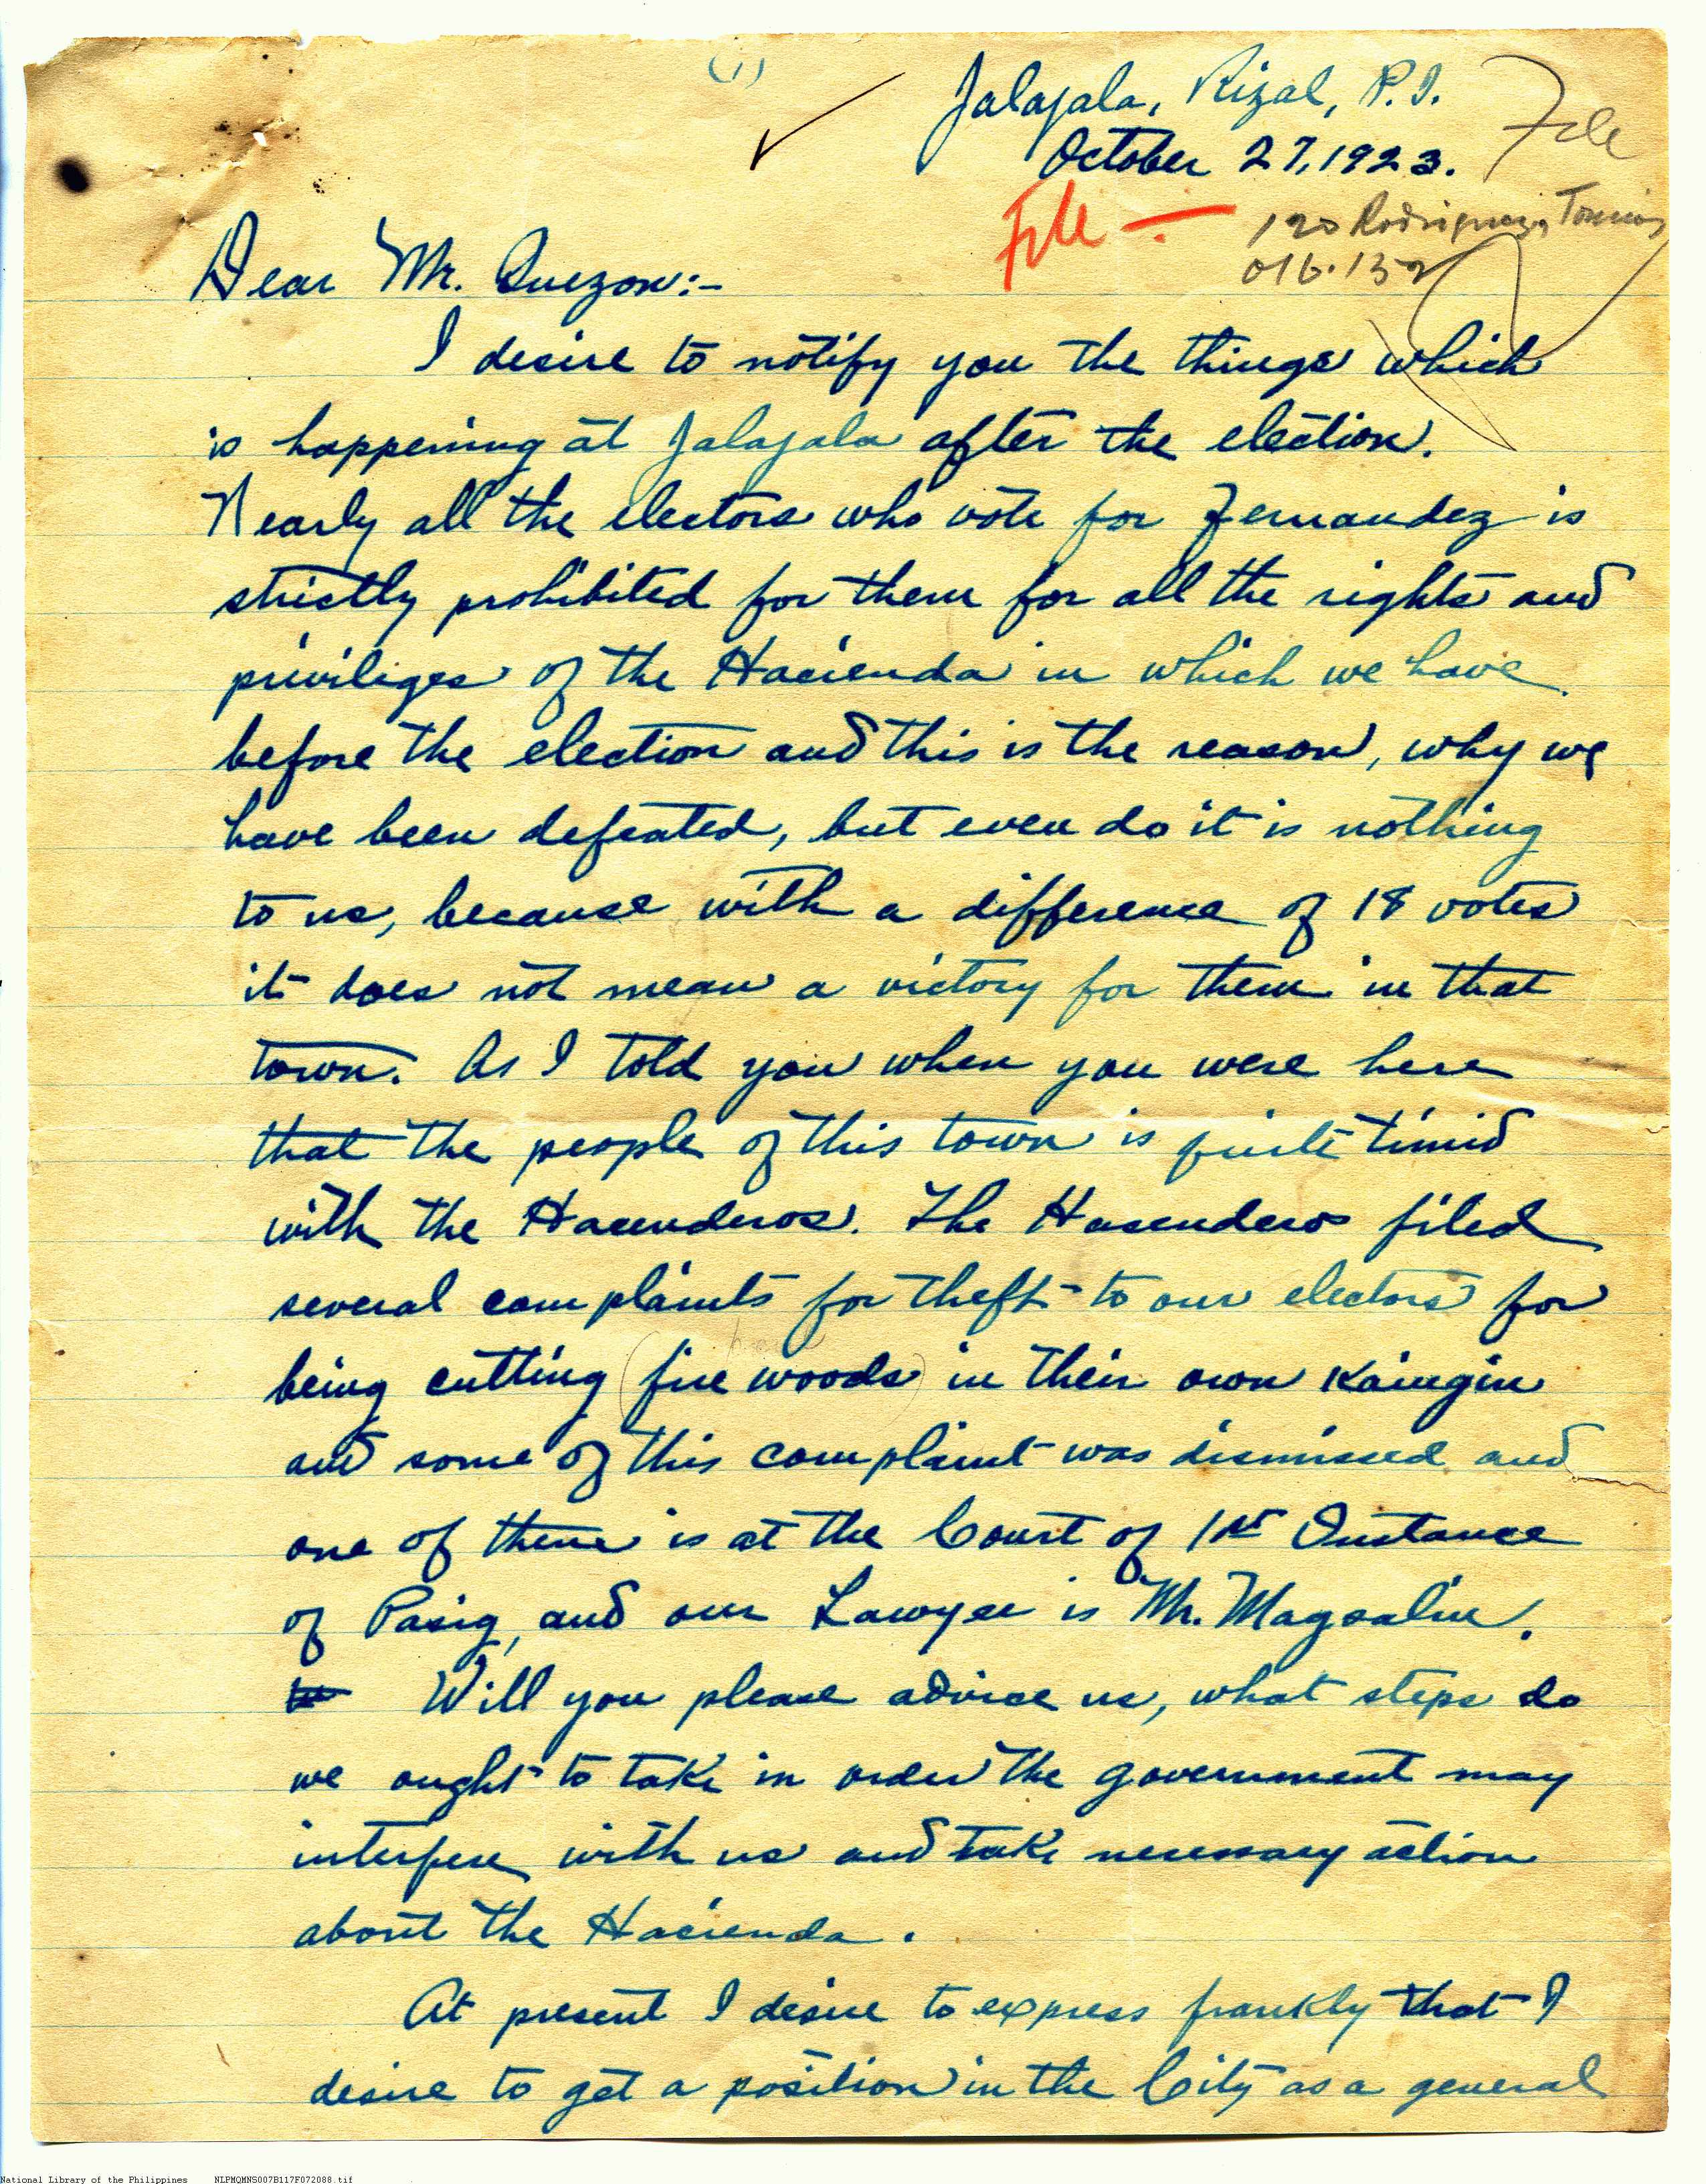 (1)
Jalajala, Rizal, P.I.
October 27, 1923.
File
File —
120 Rodriguez, Tomas
Dear Mr. Quezon:-
I desire to notify you the things which
is happening at Jalajala after the election.
Nearly all the electors who vote for Fernandez is
strictly prohibited for them for all the rights and
priviliges of the Hacienda in which we have
before the election and this is the reason, why we
have been defeated, but even do it is nothing
to us, because with a difference of 18 votes
it does not mean a victory for them in that
town. As I told you when you were here
that the people of this town is quite timid
with the Hacenderos. The Hasenderos filed
several complaints for theft to our electors for
being cutting (fire woods) in their own Kaingin
and some of this complaint was dismissed and
one of them is at the Court of 1st Instance
of Pasig, and our Lawyer is Mr. Magsalin.
Will you please advice us, what steps do
we ought to take in order the government may
interfere with us and take necessary action
about the Hacienda.
At present I desire to express frankly that I
desire to get a position in the City as a general
National Library of the Philippines NLPMQMNS007B117F072088.tif